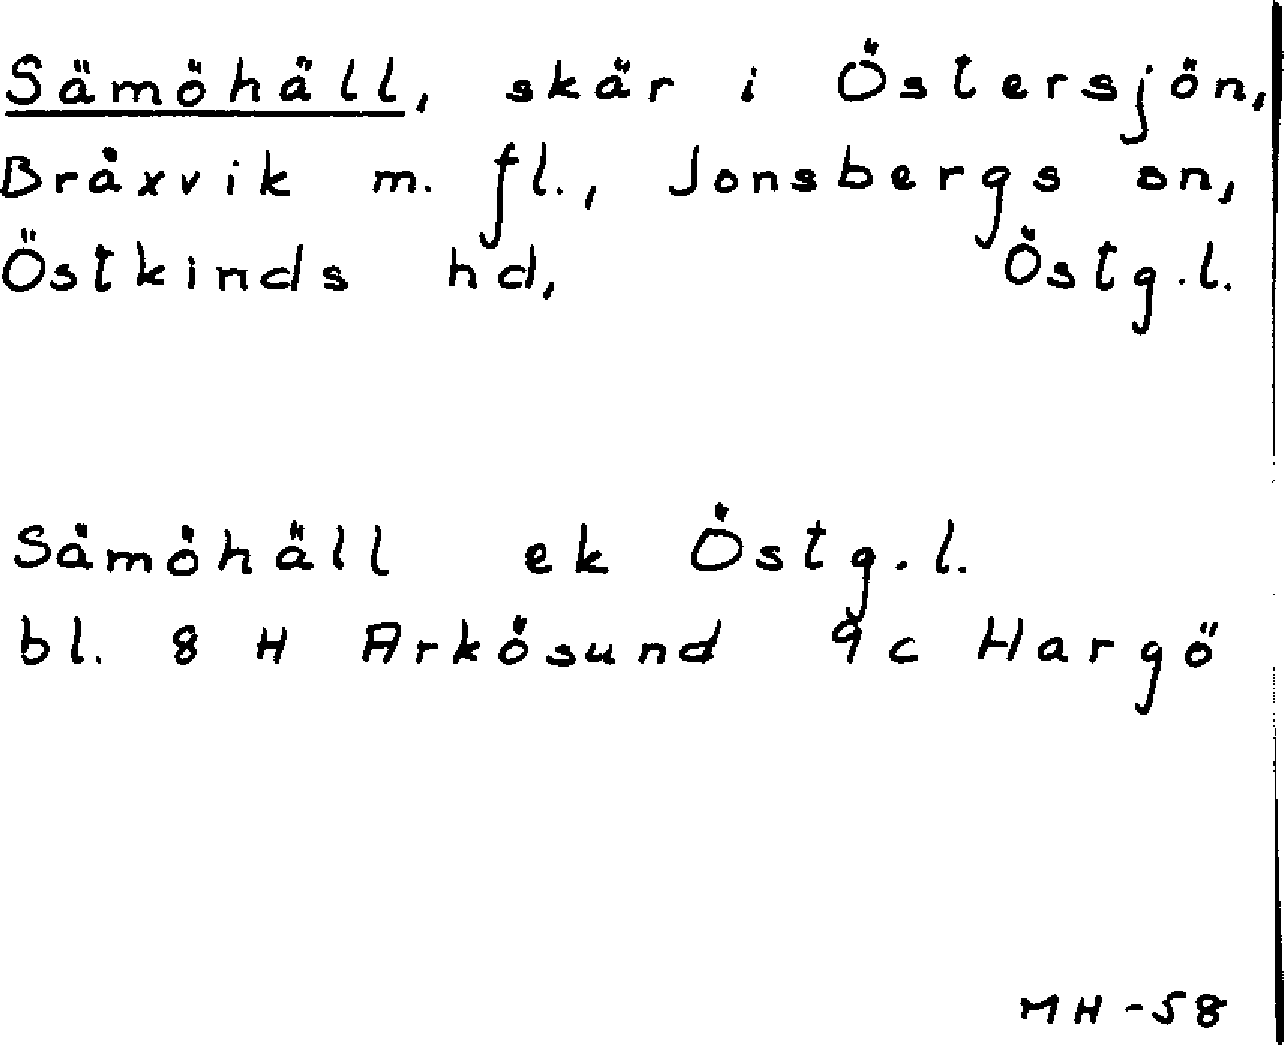 Sämöhäll, skär i Östersjön,
Bråxvik m. fl., Jonsbergs sn,
Östkinds hd, Östg.l.
Sämöhäll ek Östg.l.
bl. 8 H Arkösund 9c Hargö
MH-58